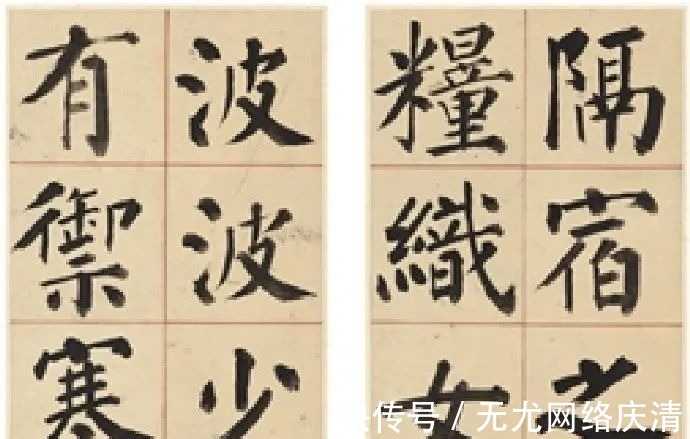 隔宿之
糧織女
波波少
有禦寒
传号 / 无尤网络庆清